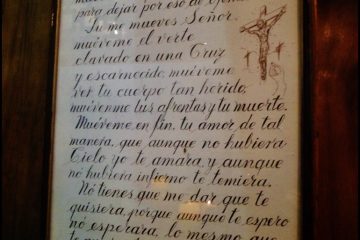 para dejar por eso de
Tu me mueves Señor,
muéveme el verte
clavado en una Cruz
y escarnecido, muéveme
ver tu cuerpo tan herido,
muévenme tus afrentas y tu muerte.
Muéveme en fin, tu amor de tal
manera, que aunque no hubiera
Cielo yo te amara, y aunque
no hubiera infierno te temiera.
Nó tienes que me dar que te
quisiera, porque aunque te espero
no esperara, lo mesmo que